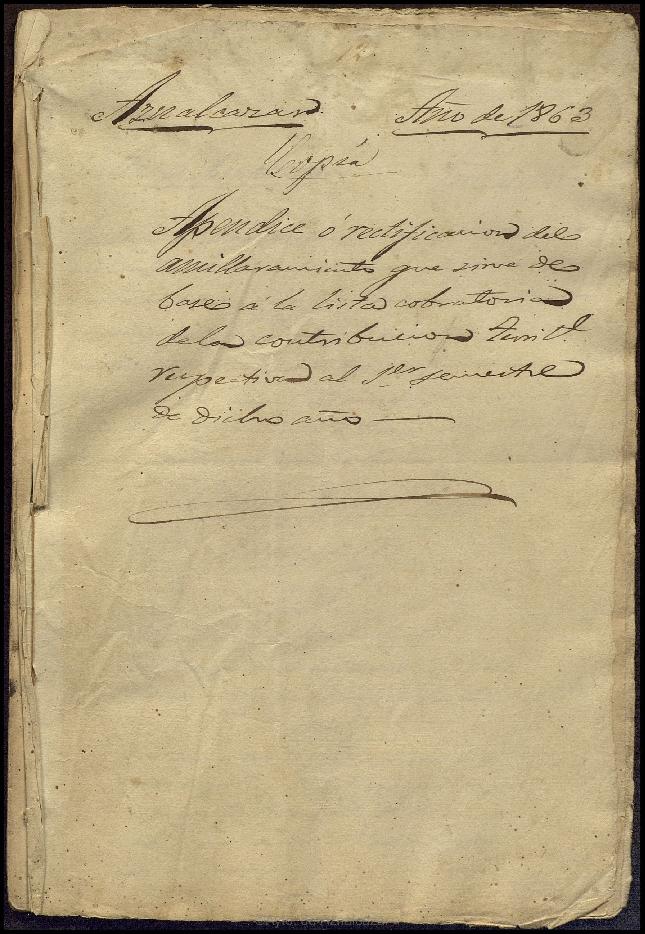 Aznalcazar. Año de 1863
Copia
Apendice ó rectificacion del
amillaramiento que sirve de
base á la lista cobratoria
de la contribucion Territ.l
respectiva al 1.er semestre
de dicho año